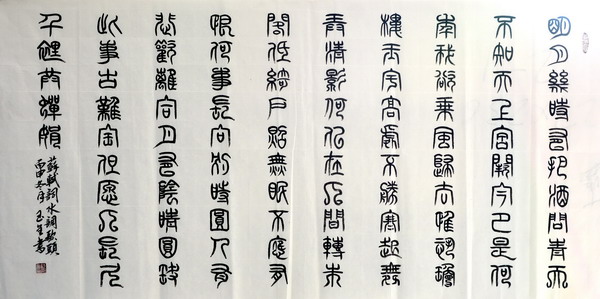 明月幾時有把酒問青天
不知天上宮闕今夕是何
年我欲乘風歸去惟恐瓊
樓玉宇高處不勝寒起舞
弄清影何似在人間轉朱
閣低綺戶照無眠不應有
恨何事長向別時圓人有
悲歡離合月有陰晴圓缺
此事古難全但願人長久
千里共嬋娟
蘇軾詞水調歌頭
丙申冬月書